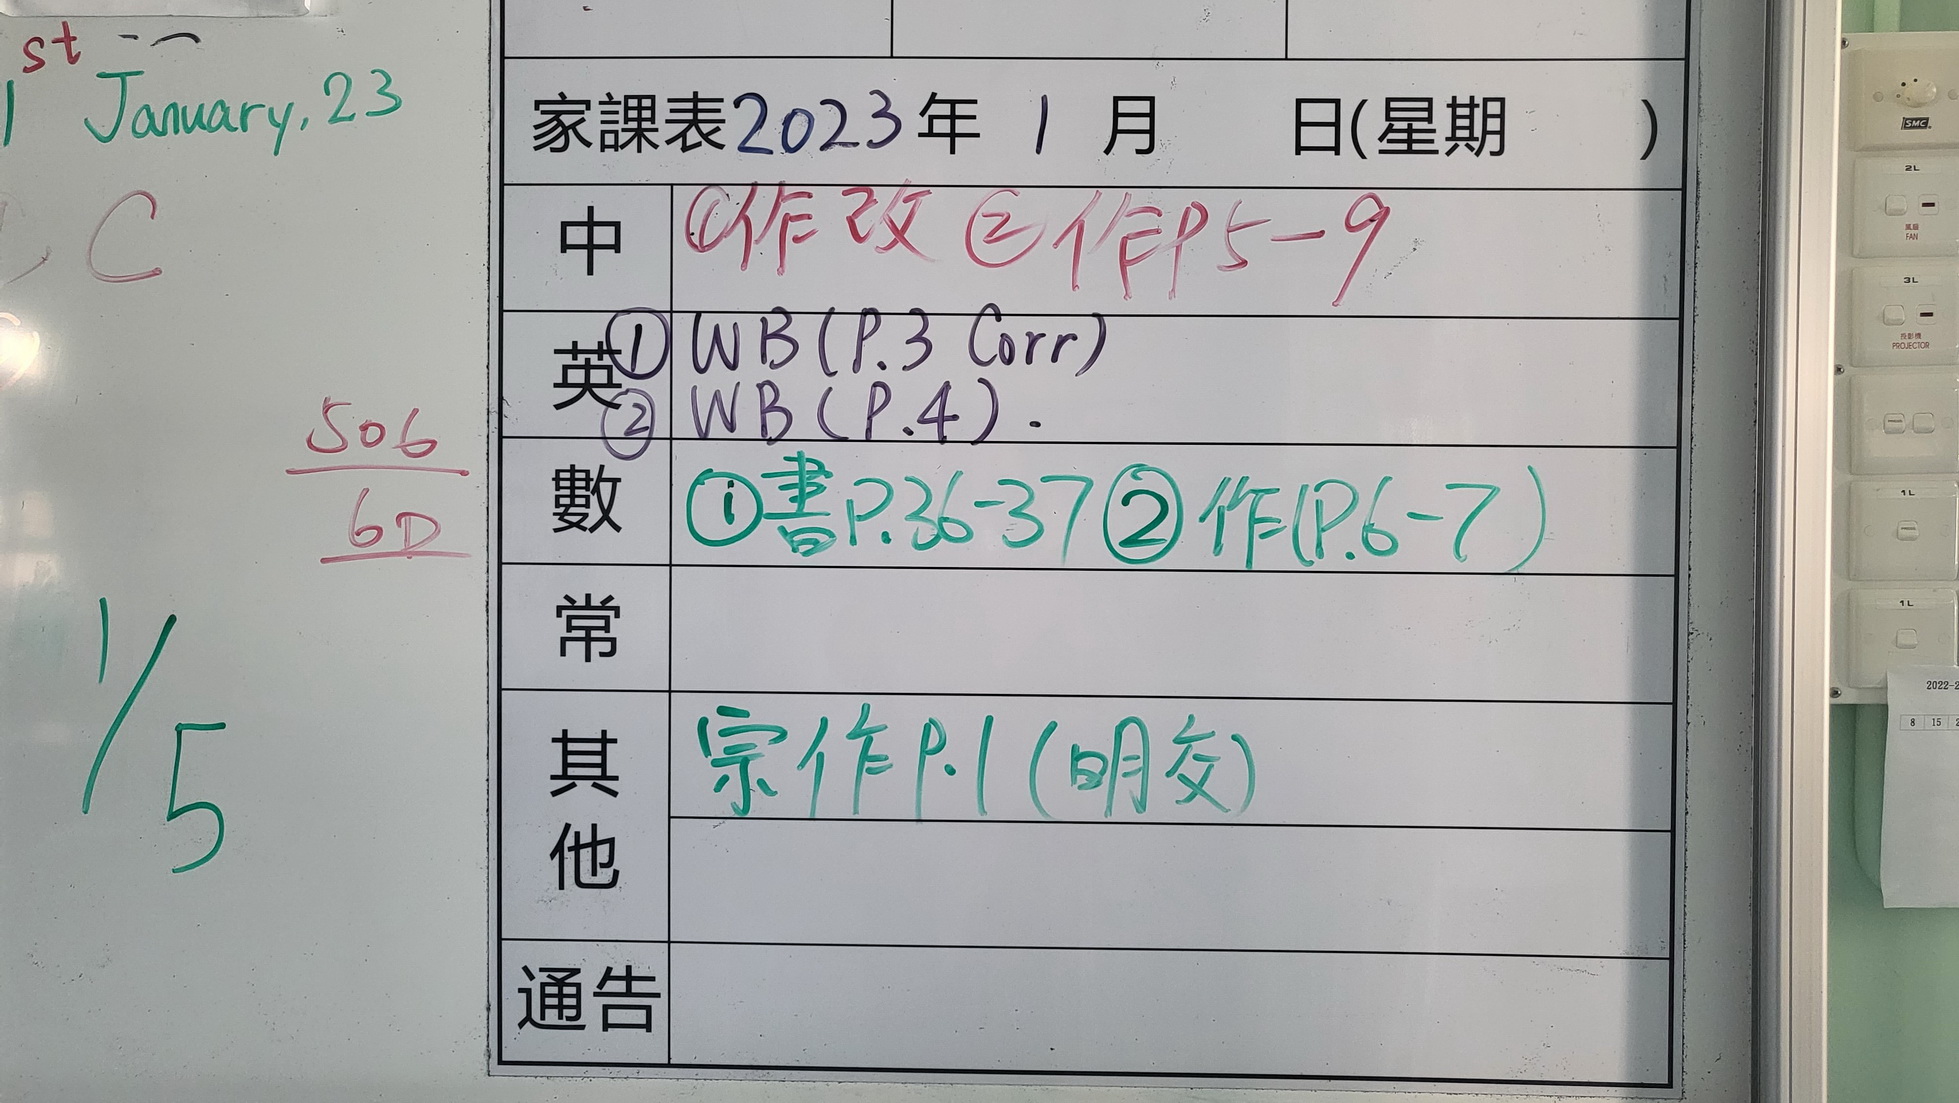 st
1 January, 23
C
506
6D
1/5
家課表2023年 1 月 日(星期 )
中 ①作改 ②作P5-9
英 ① WB (P.3 Corr)
② WB (P.4).
數 ①書P.36-37 ②作(P.6-7)
常
其他 宗作P.1 (明交)
通告
SMC
2L
風扇
FAN
3L
投影機
PROJECTOR
1L
1L
2022-2
8 15 2